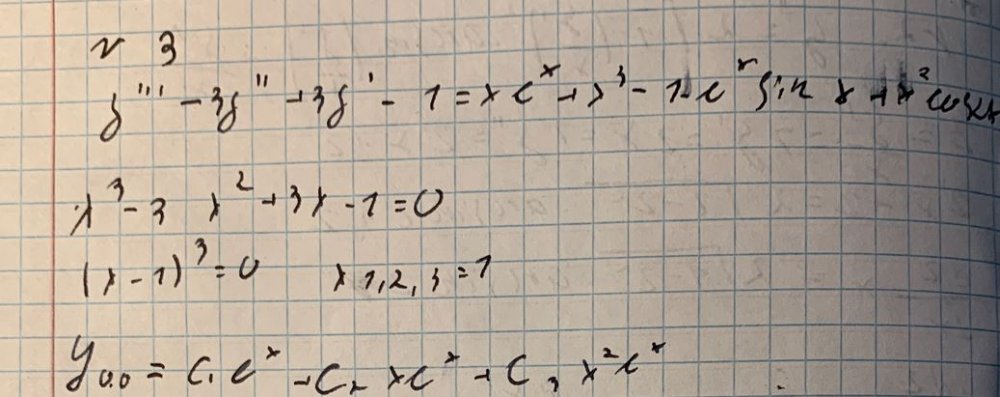 № 3
y''' - 3y'' + 3y' - 1 = xe^x + x^3 - 1 - e^x sin x + x^2 cos2x
λ^3 - 3 λ^2 + 3λ - 1 = 0
(λ - 1)^3 = 0 λ 1,2,3 = 1
y_{0.0} = C_1 e^x + C_2 xe^x + C_3 x^2 e^x